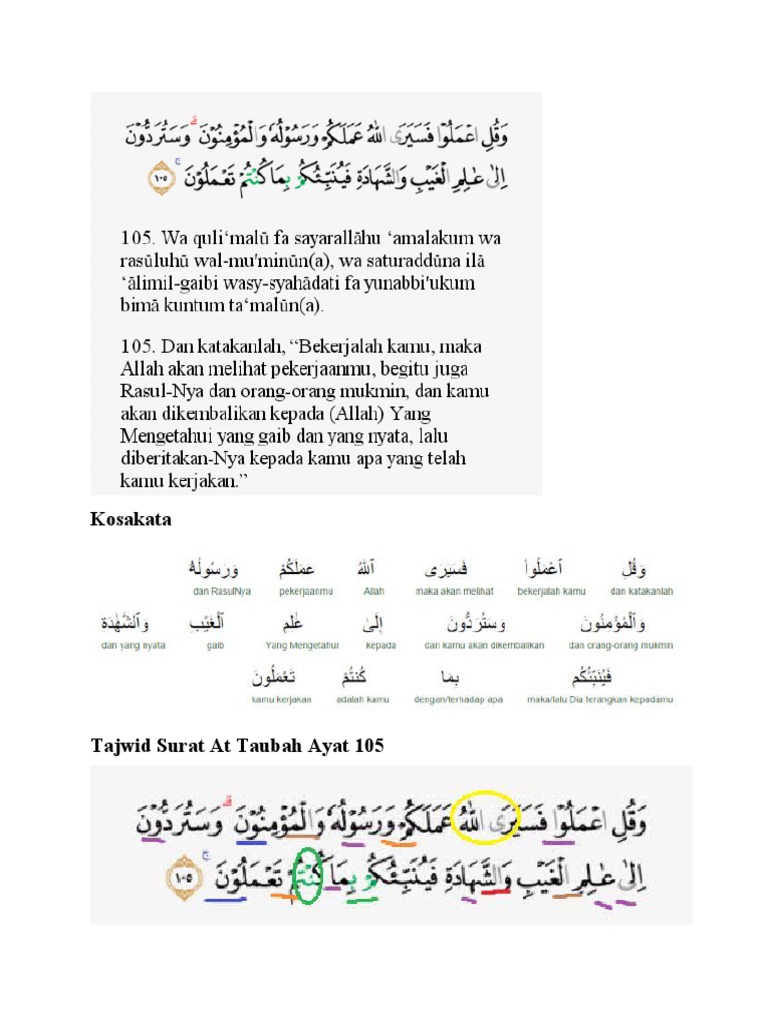 وَقُلِ اعْمَلُوْا فَسَيَرَى اللّٰهُ عَمَلَكُمْ وَرَسُوْلُهٗ وَالْمُؤْمِنُوْنَۗ وَسَتُرَدُّوْنَ
اِلٰى عٰلِمِ الْغَيْبِ وَالشَّهَادَةِ فَيُنَبِّئُكُمْ بِمَا كُنْتُمْ تَعْمَلُوْنَۚ ١٠٥
105. Wa quli‘malū fa sayarallāhu ‘amalakum wa
rasūluhū wal-mu'minūn(a), wa saturaddūna ilā
‘ālimil-gaibi wasy-syahādati fa yunabbi'ukum
bimā kuntum ta‘malūn(a).
105. Dan katakanlah, “Bekerjalah kamu, maka
Allah akan melihat pekerjaanmu, begitu juga
Rasul-Nya dan orang-orang mukmin, dan kamu
akan dikembalikan kepada (Allah) Yang
Mengetahui yang gaib dan yang nyata, lalu
diberitakan-Nya kepada kamu apa yang telah
kamu kerjakan.”
Kosakata
وَقُلِ ٱعْمَلُوا۟ فَسَيَرَى ٱللَّهُ عَمَلَكُمْ وَرَسُولُهُۥ
dan RasulNya pekerjaanmu Allah maka akan melihat bekerjalah kamu dan katakanlah
وَٱلْمُؤْمِنُونَ وَسَتُرَدُّونَ إِلَىٰ عَٰلِمِ ٱلْغَيْبِ وَٱلشَّهَٰدَةِ
dan yang nyata gaib Yang Mengetahui kepada dan kamu akan dikembalikan dan orang-orang mukmin
فَيُنَبِّئُكُم بِمَا كُنتُمْ تَعْمَلُونَ
kamu kerjakan adalah kamu dengan/terhadap apa maka/lalu Dia terangkan kepadamu
Tajwid Surat At Taubah Ayat 105
وَقُلِ اعْمَلُوْا فَسَيَرَى اللّٰهُ عَمَلَكُمْ وَرَسُوْلُهٗ وَالْمُؤْمِنُوْنَۗ وَسَتُرَدُّوْنَ
اِلٰى عٰلِمِ الْغَيْبِ وَالشَّهَادَةِ فَيُنَبِّئُكُمْ بِمَا كُنْتُمْ تَعْمَلُوْنَۚ ١٠٥